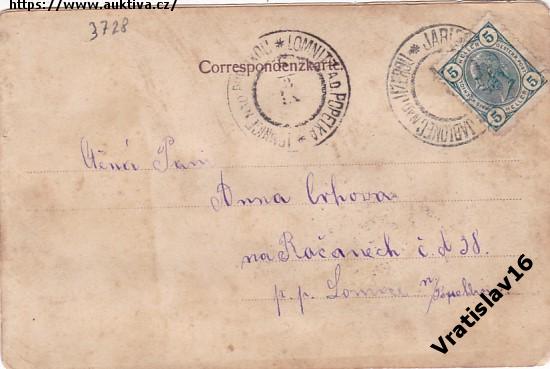 https://www.auktiva.cz/
3728
Correspondenzkarte.
LOMNITZ A.D. POPELKA
LOMNICE NAD POPELKOU
JABLONEC NAD JIZEROU
5 HELLER 5
5 HELLER 5
Ctěná Paní
Anna
na Račanech č. d 38.
p. p. Lomnice n/Popelkou
Vratislav16